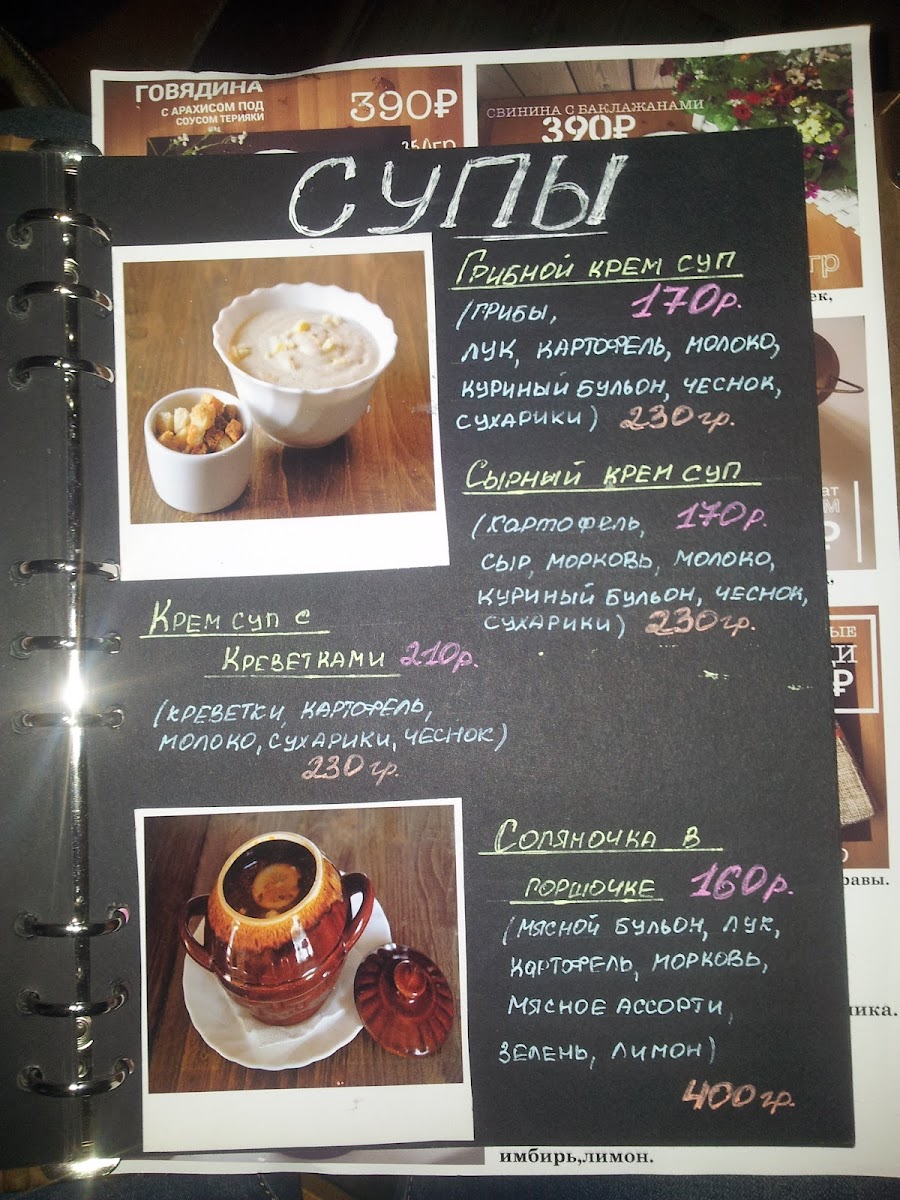 ГОВЯДИНА
С АРАХИСОМ ПОД
СОУСОМ ТЕРИЯКИ
390₽
СВИНИНА С БАКЛАЖАНАМИ
390₽
СУПЫ
ГРИБНОЙ КРЕМ СУП
(ГРИБЫ, 170р.
ЛУК, КАРТОФЕЛЬ, МОЛОКО,
КУРИНЫЙ БУЛЬОН, ЧЕСНОК,
СУХАРИКИ) 230 гр.
СЫРНЫЙ КРЕМ СУП
(КАРТОФЕЛЬ, 170р.
СЫР, МОРКОВЬ, МОЛОКО,
КУРИНЫЙ БУЛЬОН, ЧЕСНОК,
СУХАРИКИ) 230 гр.
КРЕМ СУП С
КРЕВЕТКАМИ 210р.
(КРЕВЕТКИ, КАРТОФЕЛЬ,
МОЛОКО, СУХАРИКИ, ЧЕСНОК)
230 гр.
СОЛЯНОЧКА В
ГОРШОЧКЕ 160р.
(МЯСНОЙ БУЛЬОН, ЛУК,
КАРТОФЕЛЬ, МОРКОВЬ,
МЯСНОЕ АССОРТИ,
ЗЕЛЕНЬ, ЛИМОН)
400 гр.
имбирь,лимон.